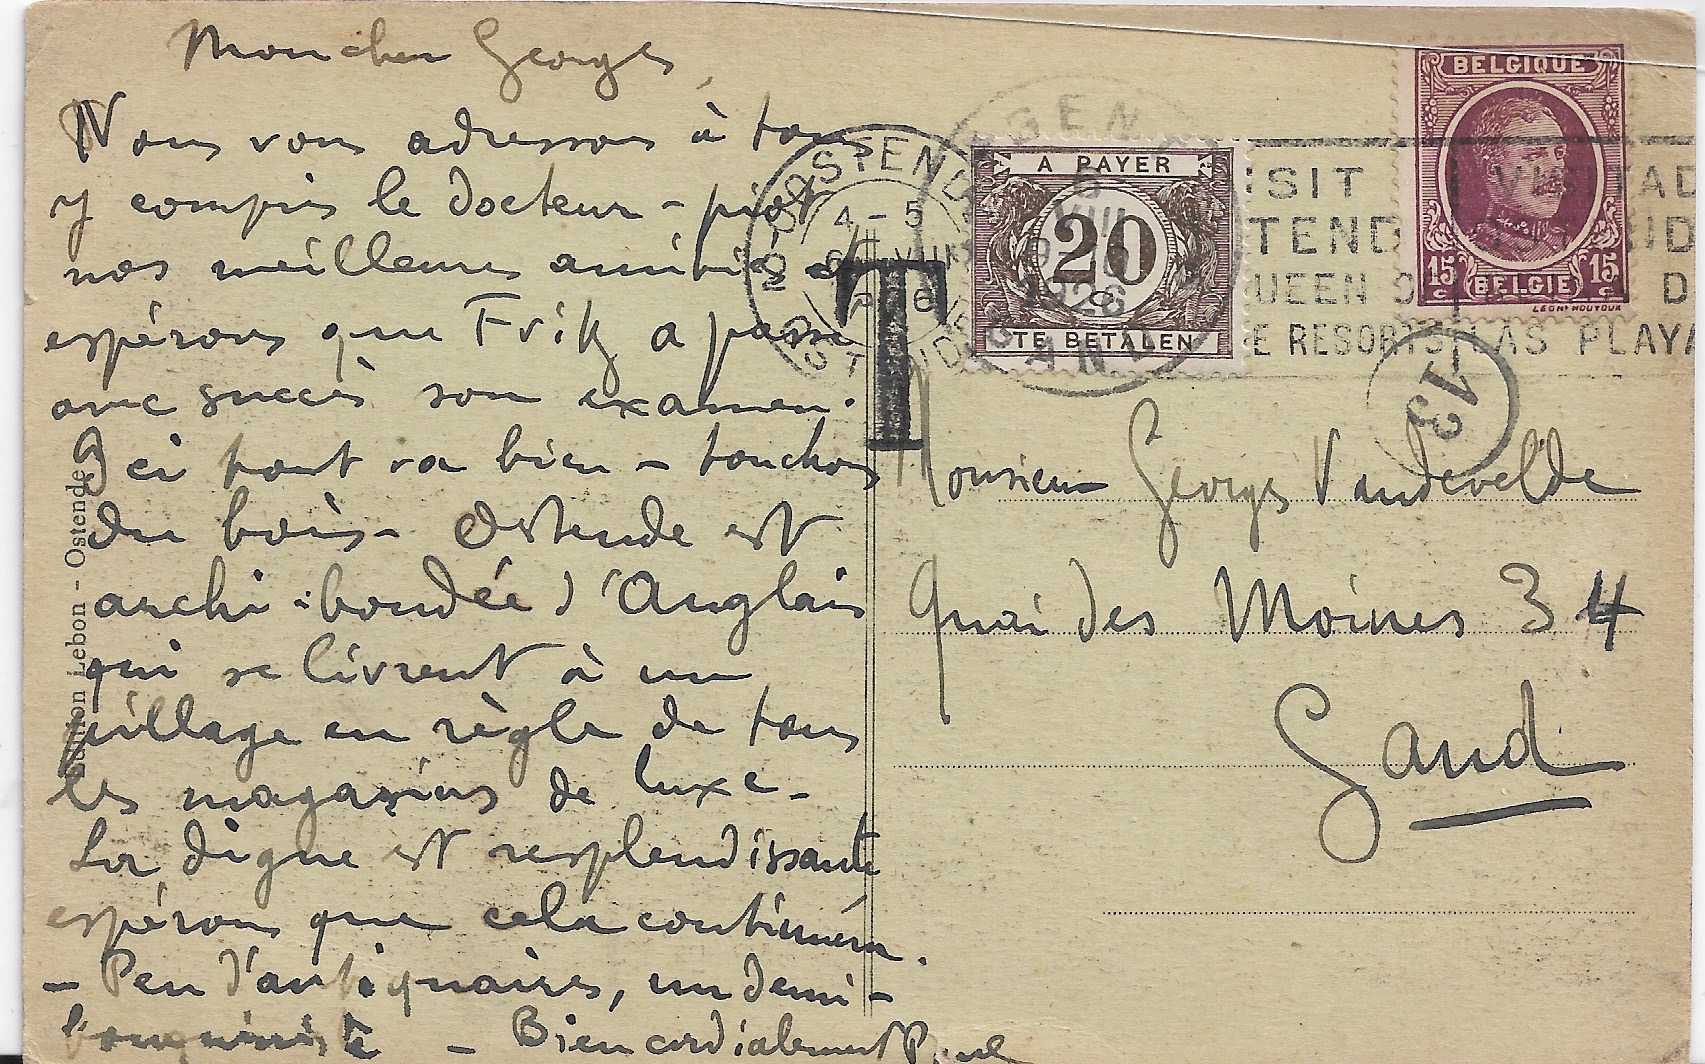 Mon cher Georges,
Nous vous adressons à tous
y compris le docteur - piot
nos meilleures amitiés et
espérons que Fritz a passé
avec succès son examen.
Ici tout va bien - touchons
du bois - Ostende est
archi-bondée d'Anglais
qui se livrent à un
pillage en règle de tous
les magasins de luxe -
La digue est resplendissante
espérons que cela continuera.
- Peu d'antiquaires, un demi-
bouquiniste - Bien cordialement Paul
Edition Lebon - Ostende
OOSTENDE
4 - 5
OSTENDE
T
GENT
VIII
1926
GAND
A PAYER
20
TE BETALEN
BELGIQUE
15 c
15 c
BELGIE
LEON HOUYOUX
SIT
TEND
UEEN
E RESORTS LAS PLAYA
13
Monsieur Georges Vandevelde
Quai des Moines 34
Gand